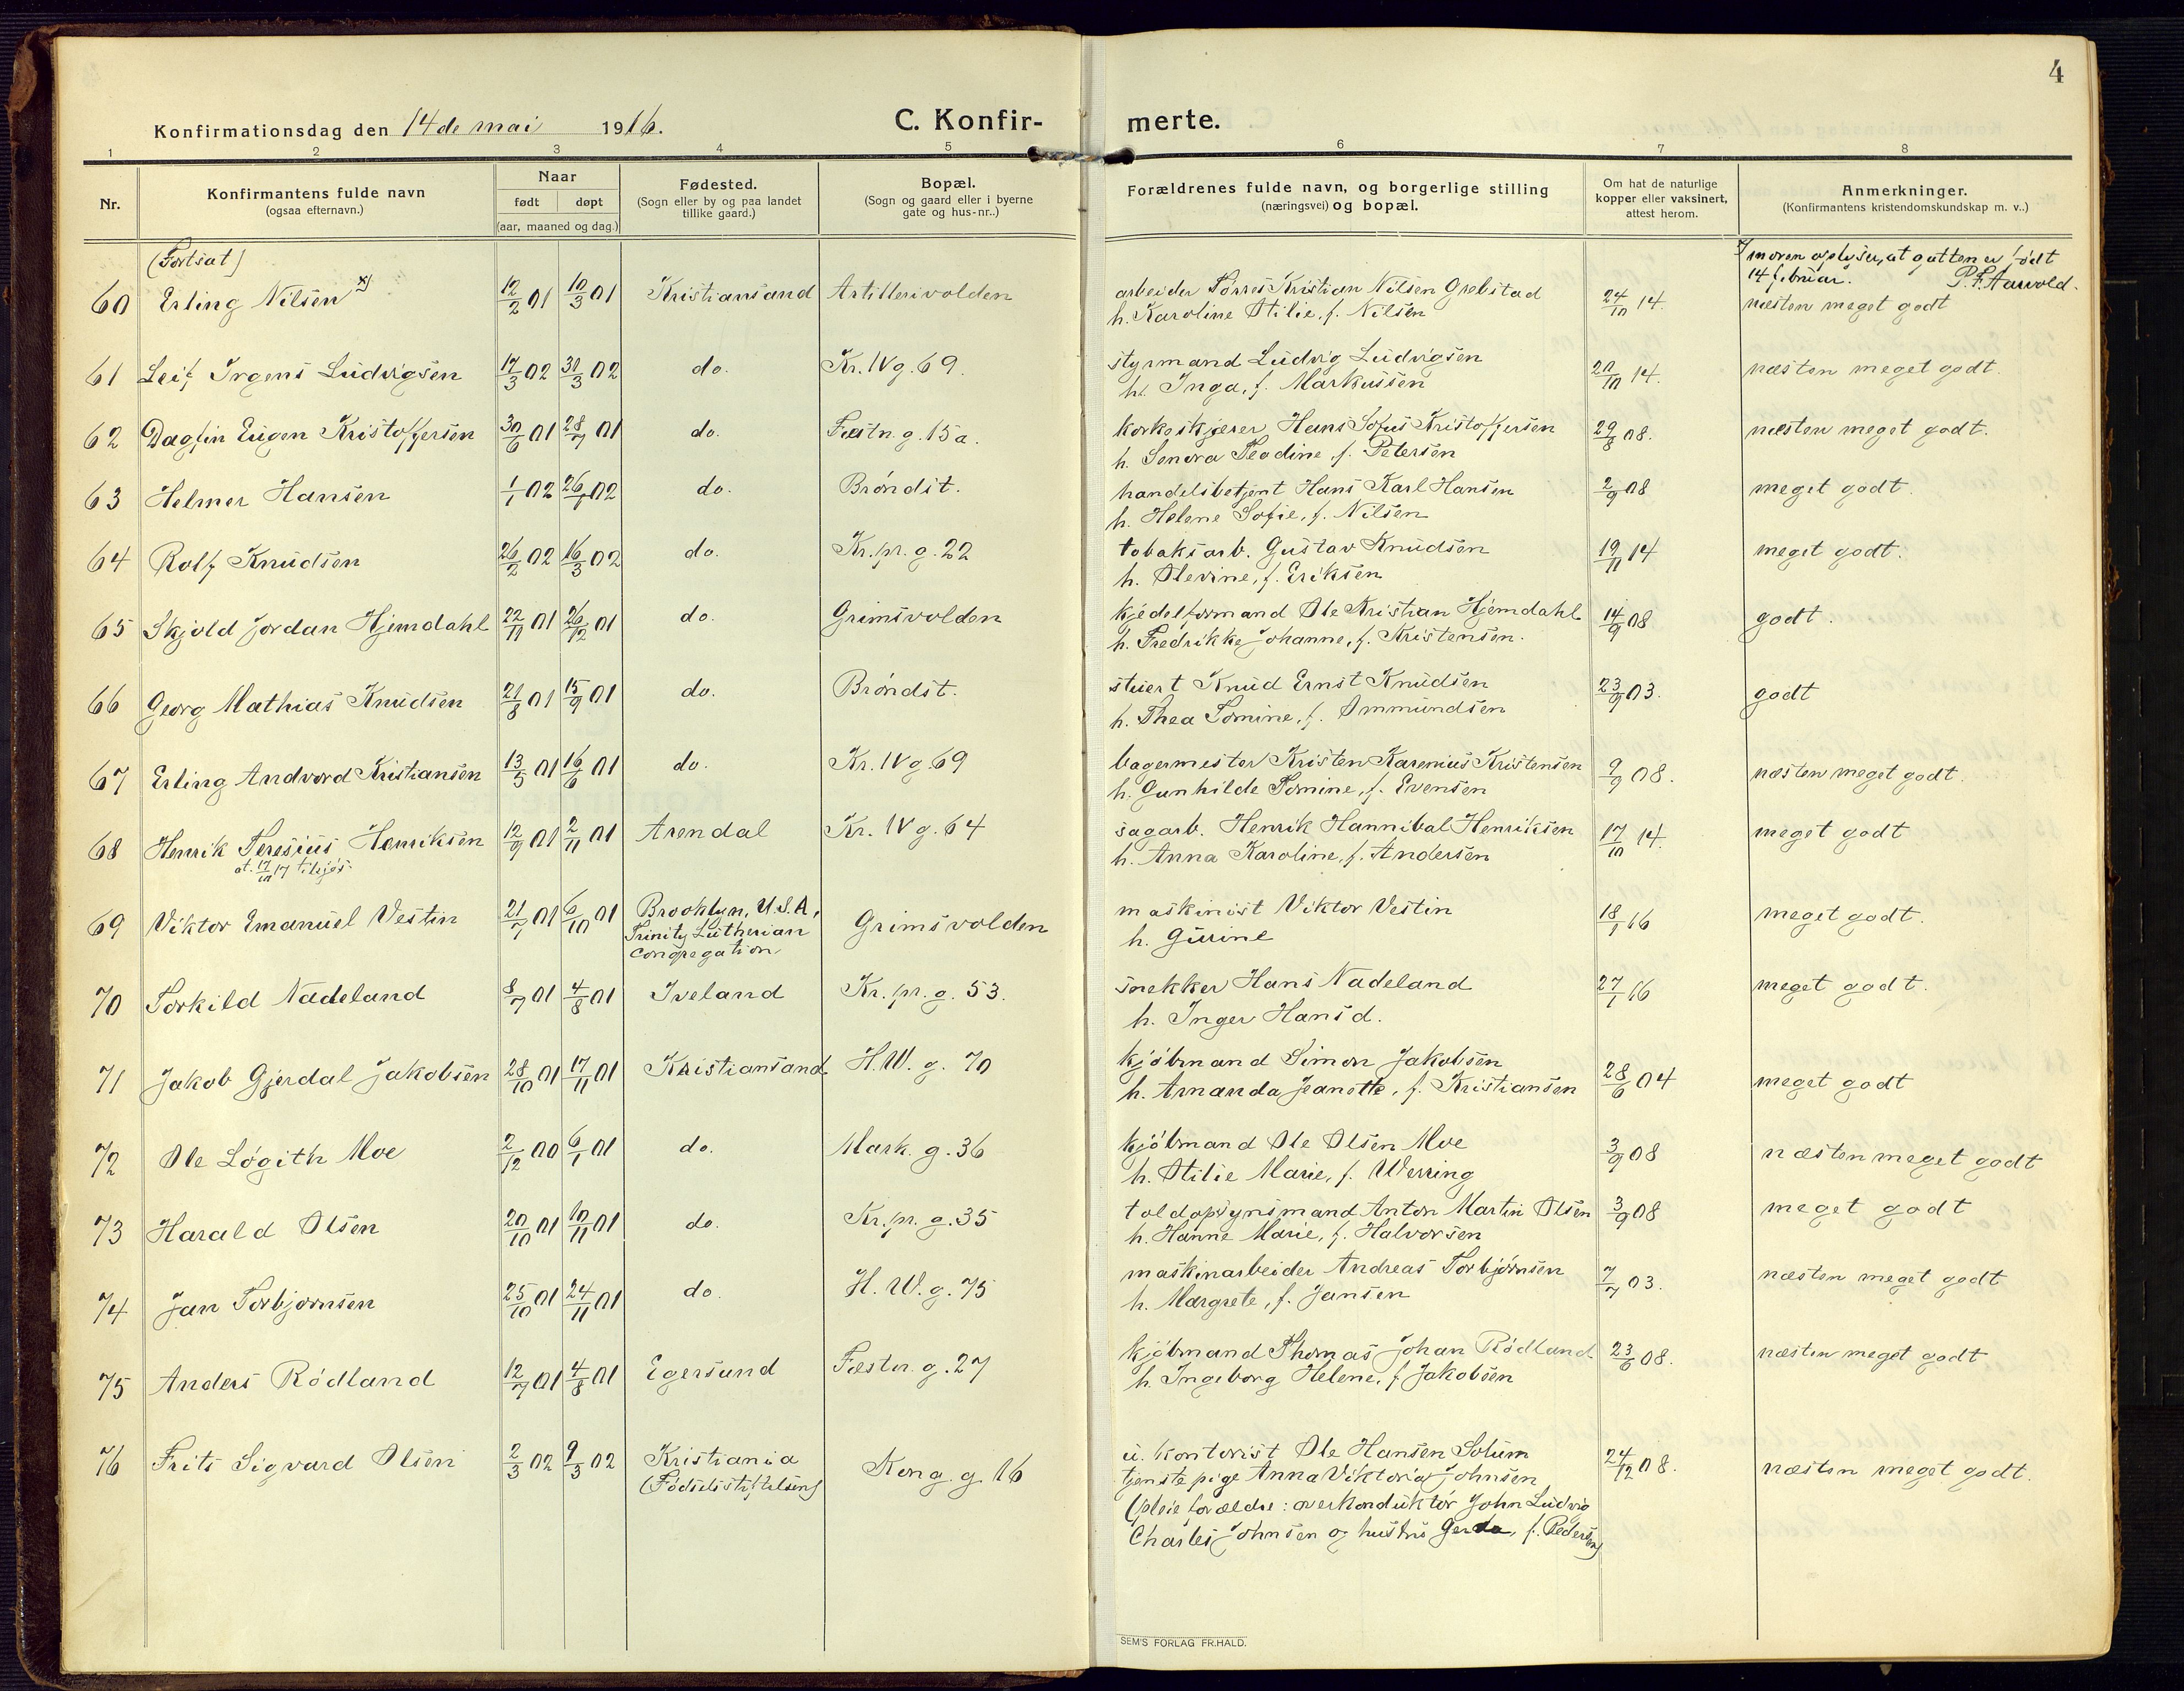 4
Konfirmationsdag den 14de mai 1916.
C. Konfir-
merte.
1 2 3 4 5 6 7 8
Nr.
Konfirmantens fulde navn
(ogsaa efternavn.)
Naar
født døpt
(aar, maaned og dag.)
Fødested.
(Sogn eller by og paa landet
tillike gaard.)
Bopæl.
(Sogn og gaard eller i byerne
gate og hus-nr..)
Forældrenes fulde navn, og borgerlige stilling
(næringsvei) og bopæl.
Om hat de naturlige
kopper eller vaksinert,
attest herom.
Anmerkninger.
(Konfirmantens kristendomskundskap m. v..)
(Fortsat)
x/ moren oplyser, at gutten er født
14 februar. P. F. Aarvold.
60 Erling Nilsen x) 12/2 01 10/3 01 Kristiansand Artillerivolden
arbeider Tørres Kristian Nilsen Grebstad 24/10 14. næsten meget godt
h. Karoline Otilie, f. Nilsen
61 Leif Irgens Ludvigsen 17/3 02 30/3 02 do. Kr. IV g. 69.
styrmand Ludvig Ludvigsen 20/10 14. næsten meget godt.
h. Inga, f. Markussen
62 Dagfin Eugen Kristoffersen 30/6 01 28/7 01 do. Fæstn. g. 15a.
korkeskjærer Hans Sofus Kristoffersen 29/8 08. næsten meget godt.
h. Senora Teodine, f. Petersen
63 Helmer Hansen 1/1 02 26/1 02 do. Brøndst.
handelsbetjent Hans Karl Hansen 2/9 08 meget godt.
h. Helene Sofie, f. Nilsen
64 Rolf Knudsen 26/2 02 16/3 02 do. Kr. pr. g. 22
tobaksarb. Gustav Knudsen 19/11 14 meget godt.
h. Olevine, f. Eriksen
65 Skjold Jordan Hjemdahl 22/11 01 26/12 01 do. Grimsvolden
kjedelformand Ole Kristian Hjemdahl 14/9 08 godt.
h. Fredrikke Johanne, f. Kristensen.
66 Georg Mathias Knudsen 21/8 01 15/9 01 do. Brøndst.
stuert Knud Ernst Knudsen 23/9 03. godt
h. Thea Tomine, f. Ommundsen
67 Erling Andvord Kristiansen 13/5 01 16/6 01 do. Kr. IV g. 69
bagermester Kristen Karenius Kristensen 9/9 08. næsten meget godt.
h. Gunhilde Tomine, f. Evensen
68 Henrik Teresius Henriksen 12/9 01 2/11 01 Arendal Kr. IV g. 64
at. 17/10 17 tilføj.
sagarb. Henrik Hannibal Henriksen 17/10 14. meget godt
h. Anna Karoline, f. Andersen
69 Viktor Emanuel Vestin 21/7 01 6/10 01 Brooklyn, U.S.A., Grimsvolden
Trinity Lutherian
congregation.
maskinist Viktor Vestin 18/1 16 meget godt.
h. Gurine
70 Torkild Nadeland 8/7 01 4/8 01 Iveland Kr. pr. g. 53.
snekker Hans Nadeland 27/1 16 meget godt.
h. Inger Hansd.
71 Jakob Gjerdal Jakobsen 28/10 01 17/11 01 Kristiansand. H. W. g. 70
kjøbmand Simon Jakobsen 28/6 04 meget godt
h. Amanda Jeanette, f. Kristiansen
72 Ole Løgith Moe 2/12 00 6/1 01 do. Mark. g. 36
kjøbmand Ole Olsen Moe 3/9 08 næsten meget godt
h. Otilie Marie, f. Werring
73 Harald Olsen 20/10 01 10/11 01 do. Kr. pr. g. 35
toldopsynsmand Anton Martin Olsen 3/9 08 meget godt
h. Hanne Marie, f. Halvorsen
74 Jan Torbjørnsen 25/10 01 24/11 01 do. H. W. g. 75
maskinarbeider Andreas Torbjørnsen 7/7 03. næsten meget godt
h. Margrete, f. Jansen
75 Anders Rødland 12/7 01 4/8 01 Egersund Fæstn. g. 27
kjøbmand Thomas Johan Rødland 23/6 08. næsten meget godt
h. Ingeborg Helene, f. Jakobsen
76 Frits Sigvard Olsen 2/3 02 9/3 02 Kristiania Kong. g. 16
(Fødselsstiftelsen)
u. kontorist Ole Hansen Solum 24/12 08. næsten meget godt.
tjenstepige Anna Viktoria Johnsen
(pleieforældre: overkonduktør John Ludvig
Charles Johnsen og hustru Gerda, f. Pedersen)
SEM'S FORLAG FR.HALD.